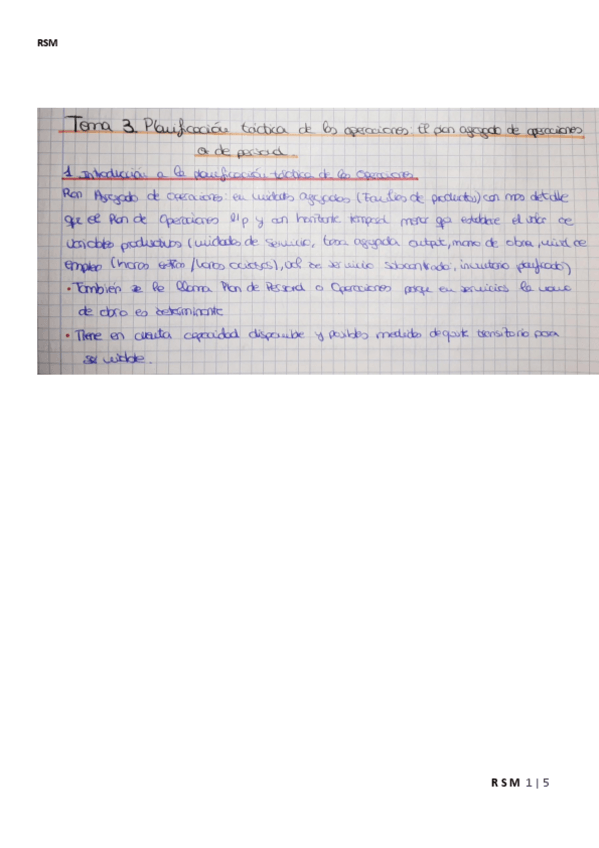 RSM
Tema 3. Planificación táctica de las operaciones. El plan agregado de operaciones
o de personal.
1. Introducción a la planificación táctica de las operaciones.
Plan Agregado de operaciones: en unidades agregadas (familias de productos) con mas detalle
que el Plan de Operaciones l/p y con horizonte temporal menor que establece el valor de
variables productivas (unidades de servicio, tasa agregada output, mano de obra, nivel de
empleo (horas extras / horas ociosas), servicio subcontratado, inventario planificado)
• También se le llama Plan de Personal o Operaciones porque en servicios la mano
de obra es determinante
• Tiene en cuenta capacidad disponible y posibles medidas de ajuste transitorio para
ser viable.
RSM 1 | 5